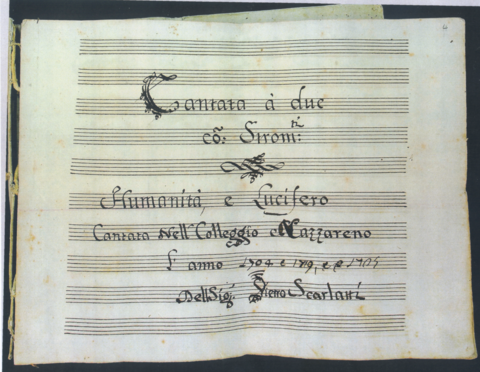 Cantata à due
cõ: Strom:ti
Humanità, e Lucifero
Cantata Nell' Colleggio Nazzareno
L'anno 1704 e
Dell Sig:r Pietro Scarlatti